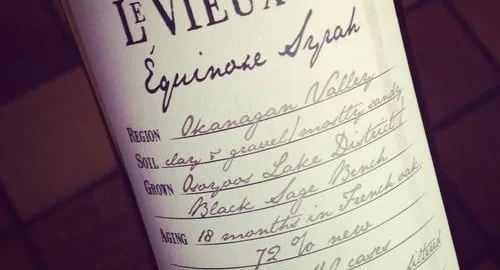 LE VIEUX
Équinoxe Syrah
REGION Okanagan Valley
SOIL clay & gravel / mostly sandy
GROWN Osoyoos Lake District /
Black Sage Bench
AGING 18 months in French oak
72 % new
cases
filtered